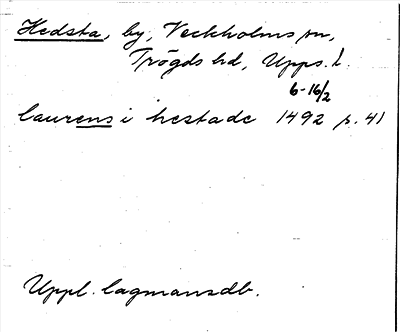 Hedsta, by, Veckholms sn,
Trögds hd, Upps. l.
6-16/2
laurens i hestade 1492 p. 41
Uppl. lagmansdb.